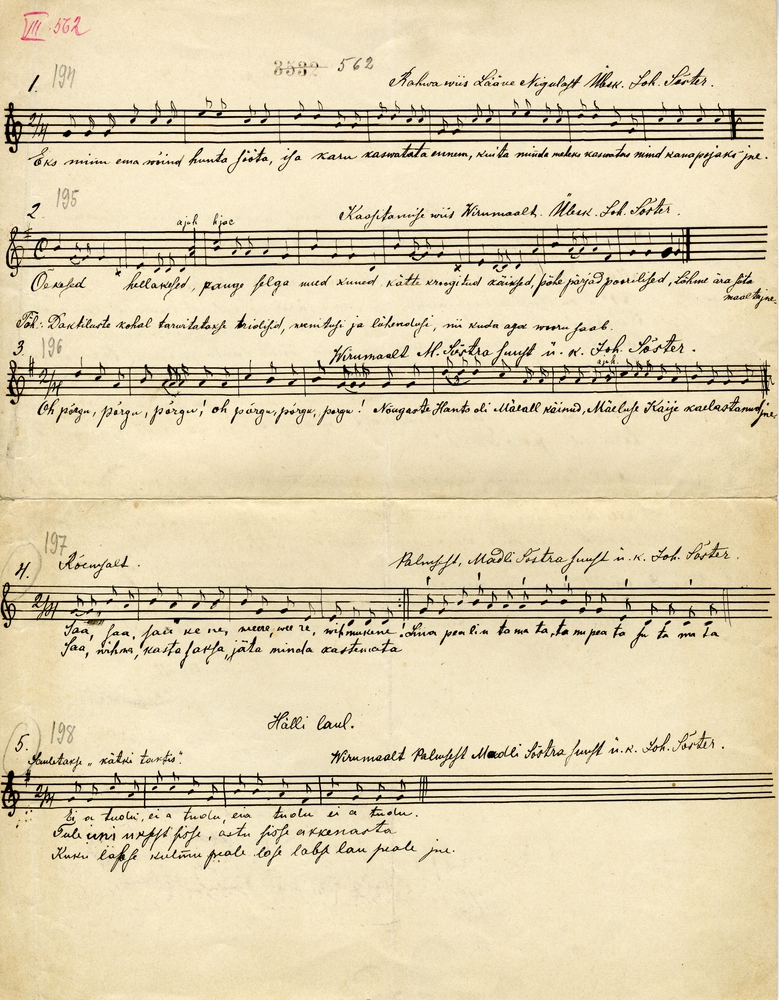 VII. 562
3532 562
1. 194 Rahwa wiis Lääne Nigulast Üleск. Joh. Söster.
Eks minu ema wõind hunta sööta, isa karu kaswatata ennem, kuita minda kaswatas mind kanapojaks jne.
2. 195 Kaasitamise wiis Wirumaalt. Ülesk. Joh. Söster.
ajab hjoc
Õekesed hellakesed, pange selga uued kuued kätte kroogitud käiksed, pähe pärjad poorilised, Lähme ära
maal tee jne.
Täh.: Daktiluste kohal tarwitatakse triolisid, weenitusi ja lühendusi, nii kuda aga wooru saab.
3. 196 Wirumaalt M. Söstra suust ü. k. Joh. Söster.
ajab
Oh põrgu, põrgu, põrgu! oh põrgu, põrgu, porgu! Nõugaste Hants oli Mäeall käinud, Mäeluse Kaije kaelastanud, jne.
197
4. Rõemsalt. Palmsest, Madli Söstra suust ü. k. Joh. Söster.
Saa, saa, saa ke ne, weere, wee re, wihmukene! Sinu pea lin tama ta, ta mu pea ta su ta ma ta
Saa, wihma, kasta saksa, jäta minda kastemata
Hälli laul.
5. 198
Lauletakse „kätki taktis". Wirumaalt Palmsest Madli Söstra suust ü. k. Joh. Söster.
Ei a tudu, ei a tudu, eia tudu ei a tudu.
Tule uni uksest sisse, astu sisse akkenasta
Kuku lapse kulmu peale lase lapse lau peale jne.